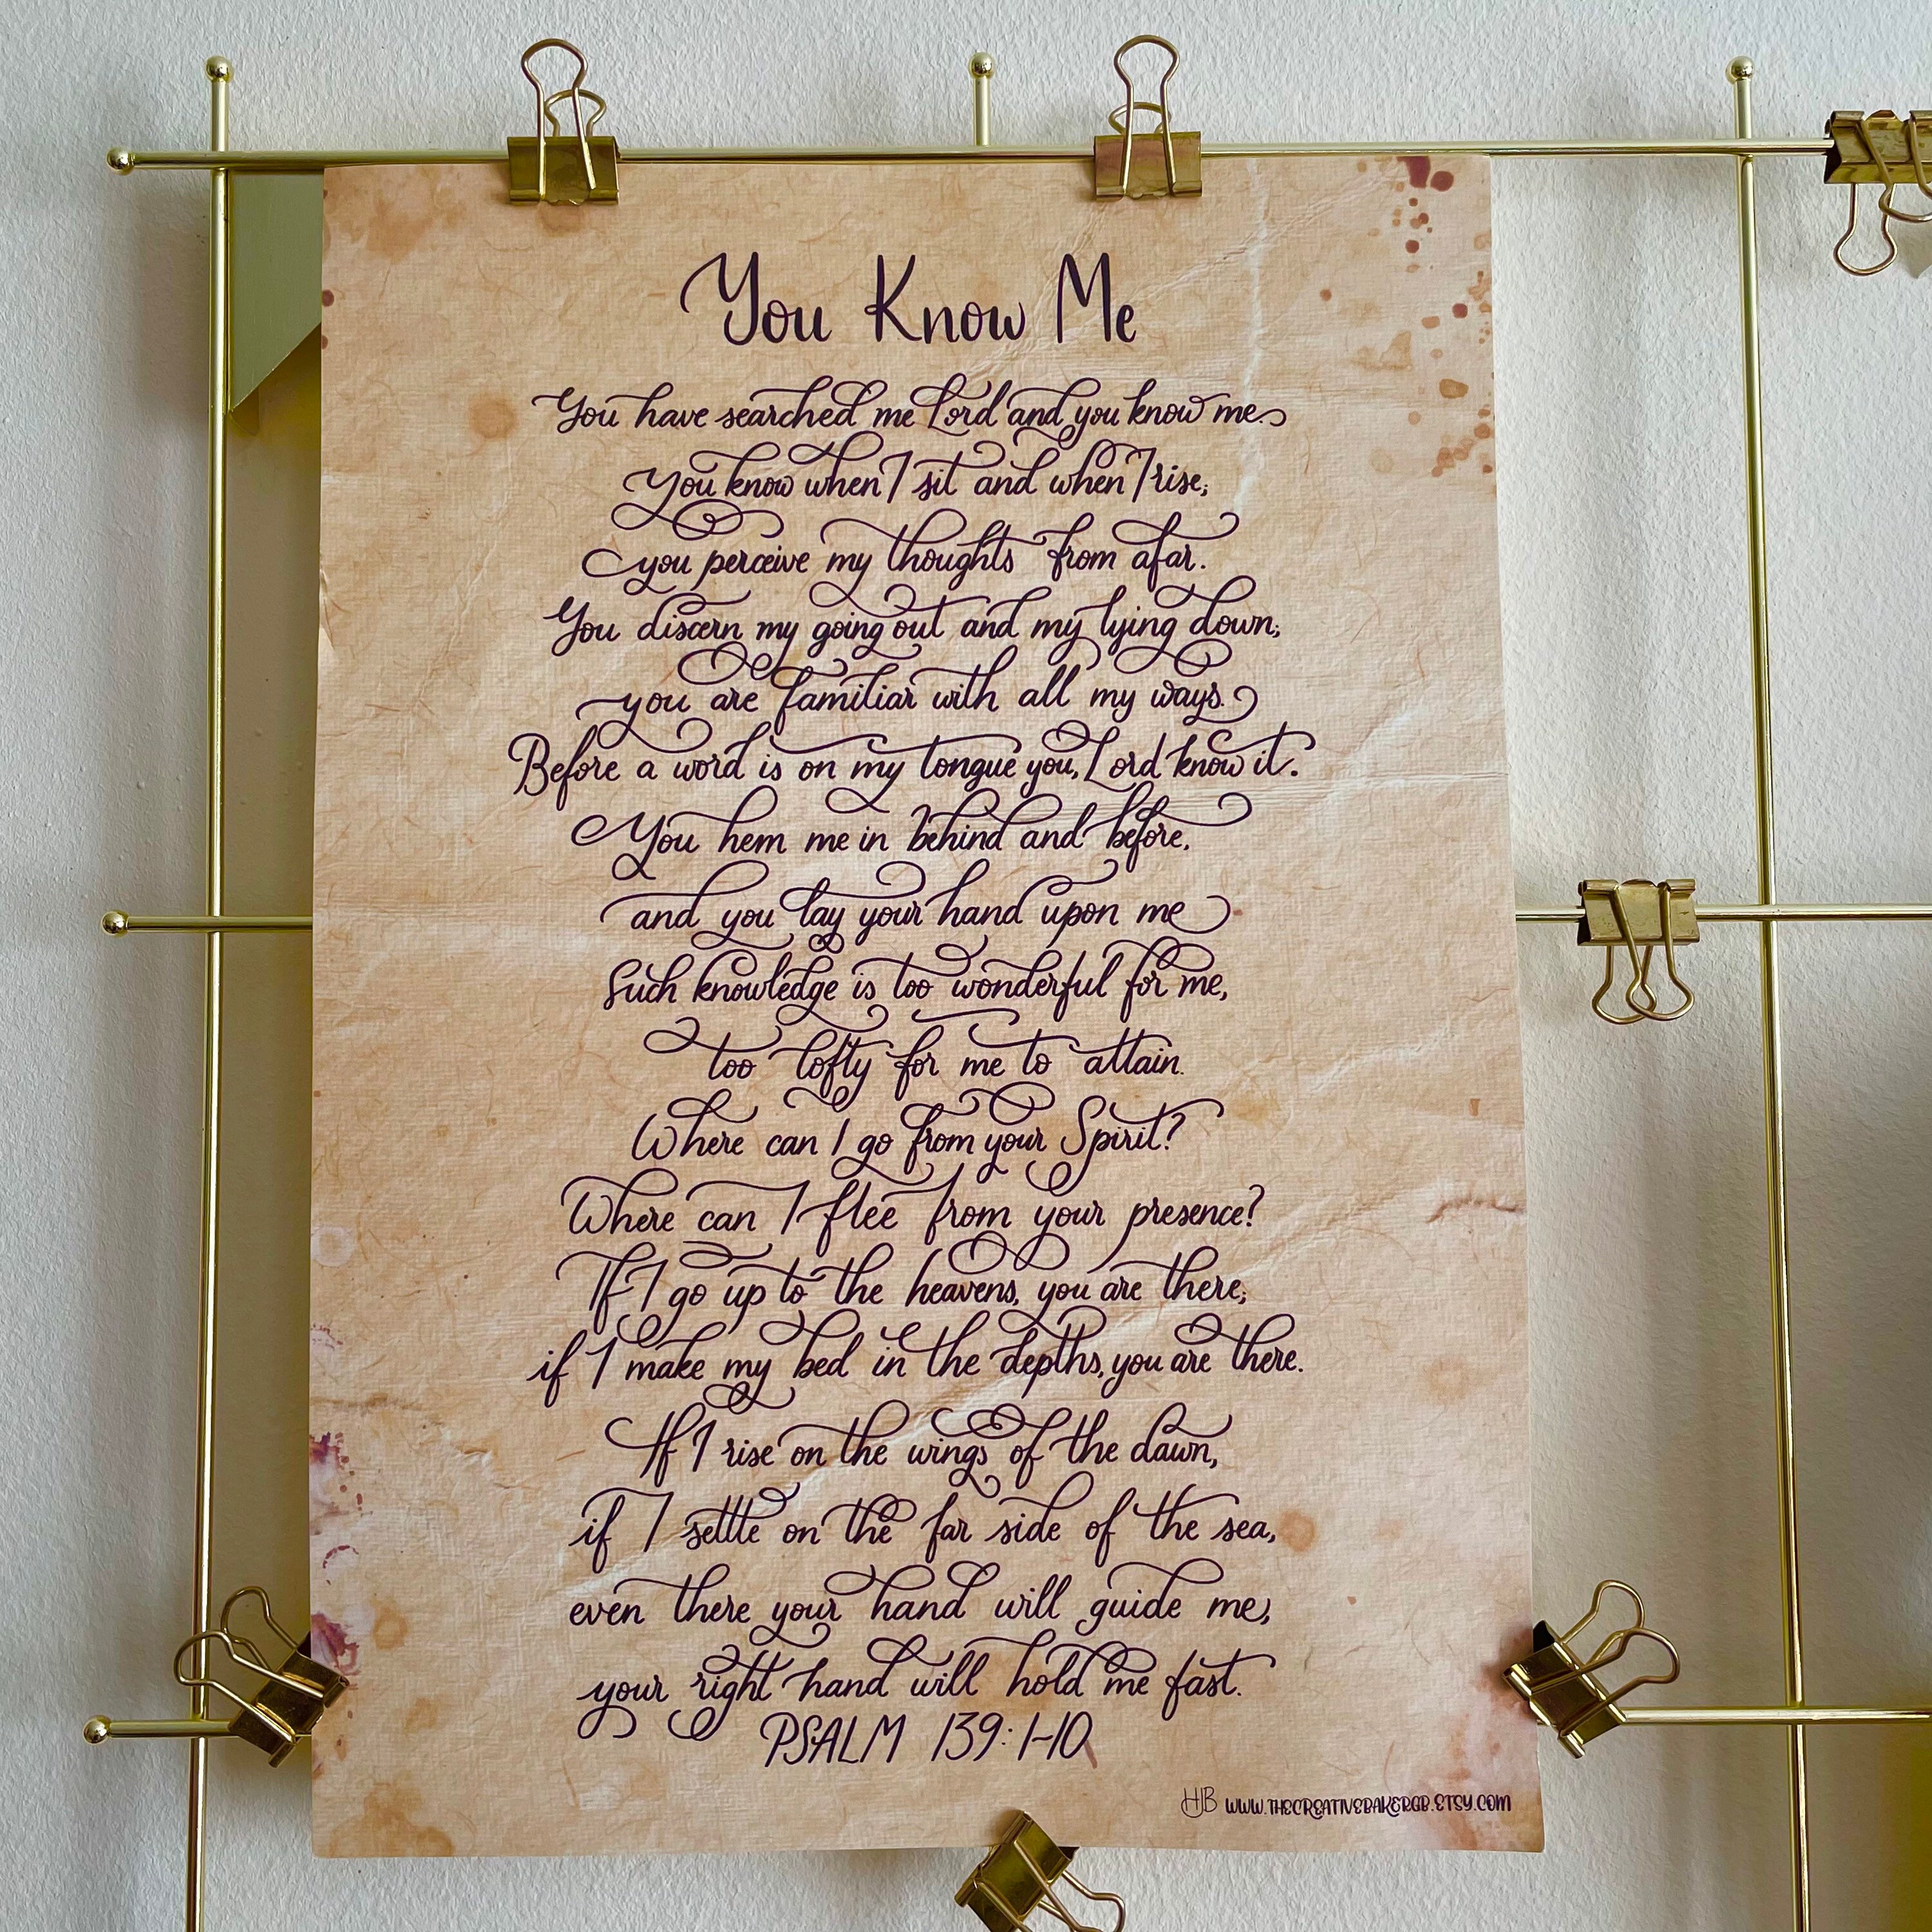 You Know Me
You have searched me Lord and you know me.
You know when I sit and when I rise;
you perceive my thoughts from afar.
You discern my going out and my lying down;
you are familiar with all my ways.
Before a word is on my tongue you, Lord know it.
You hem me in behind and before,
and you lay your hand upon me
Such knowledge is too wonderful for me,
too lofty for me to attain.
Where can I go from your Spirit?
Where can I flee from your presence?
If I go up to the heavens, you are there;
if I make my bed in the depths, you are there.
If I rise on the wings of the dawn,
if I settle on the far side of the sea,
even there your hand will guide me,
your right hand will hold me fast.
PSALM 139:1-10
HJB WWW.THECREATIVEBAKERGB.ETSY.COM